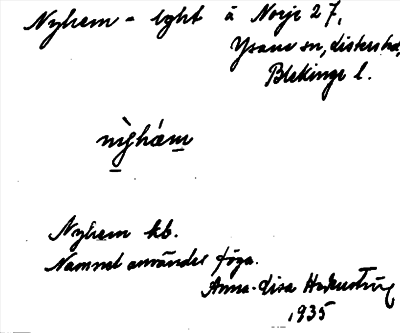 Nyhem - lght å Norje 27,
Ysane sn, Listers hd,
Blekinge l.
nỳhæ̀m
Nyhem kb.
Namnet användes föga.
Anna-Lisa
1935